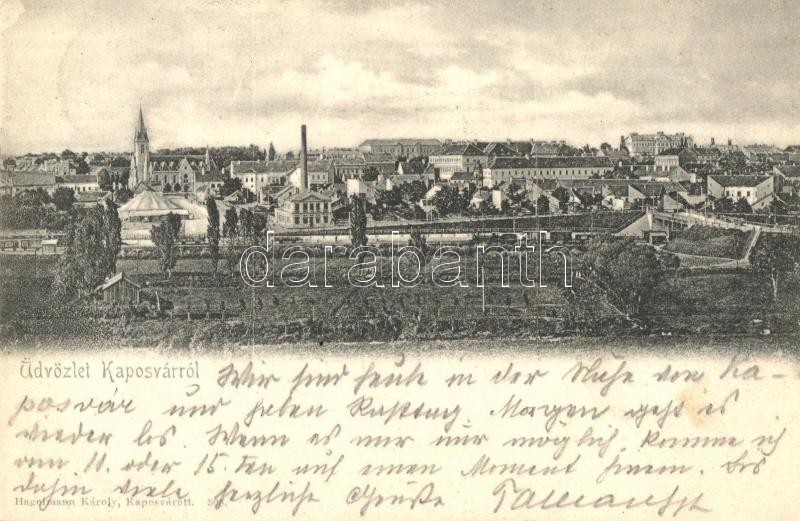 darabanth
Üdvözlet Kaposvárról
Wir sind heute in der Nähe von Ka-
posvár und haben Rasttag. Morgen geht es
wieder los. Wenn es mir nur möglich komme ich
am 11. oder 15. ten auf einen Moment hinein. Bis
dahin viele herzliche Grüße
Hagelmann Károly, Kaposvárott.